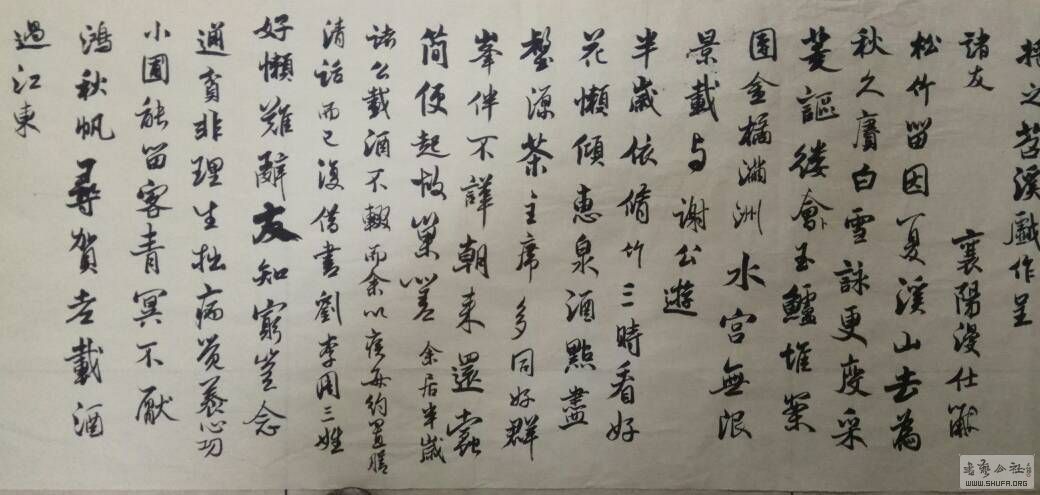 將之苕溪戲作呈
諸友 襄陽漫仕黻
松竹留因夏溪山去為
秋久賡白雪詠更度采
菱謳縷會玉鱸堆案
團金橘滿洲水宮無限
景載与謝公遊
半歲依脩竹三時看好
花懶傾惠泉酒點盡
壑源茶主席多同好群
峯伴不譁朝來還蠹
簡便起故巢嗟 余居半歲
諸公載酒不輟而余以疾每約置膳
清話而已復借書劉李周三姓
好懶難辭友知窮豈念
通貧非理生拙病覺養心功
小圃能留客青冥不厭
鴻秋帆尋賀老載酒
過江東
書藝公社
WWW.SHUFA.ORG